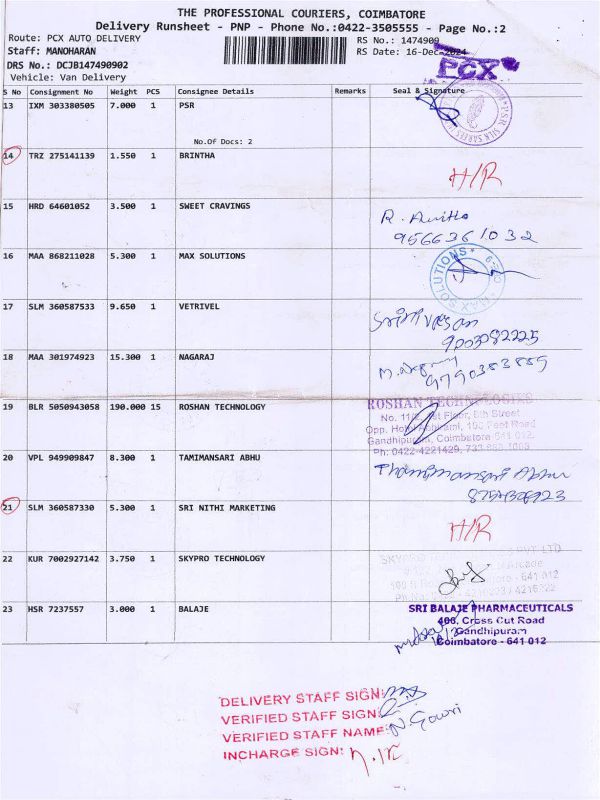 THE PROFESSIONAL COURIERS, COIMBATORE
Delivery Runsheet - PNP - Phone No.:0422-3505555 - Page No.:2
Route: PCX AUTO DELIVERY
RS No.: 1474909
Staff: MANOHARAN
RS Date: 16-Dec-2024
DRS No.: DCJB147490902
PCX
Vehicle: Van Delivery
S No Consignment No Weight PCS Consignee Details Remarks Seal & Signature
13 IXM 303380505 7.000 1 PSR
No.Of Docs: 2
14 TRZ 275141139 1.550 1 BRINTHA
H/R
15 HRD 64601052 3.500 1 SWEET CRAVINGS
R.
9566361032
16 MAA 868211028 5.300 1 MAX SOLUTIONS
MAX SOLUTIONS
17 SLM 360587533 9.650 1 VETRIVEL
Srinivasan
9003082225
18 MAA 301974923 15.300 1 NAGARAJ
9790383889
19 BLR 5050943058 190.000 15 ROSHAN TECHNOLOGY
ROSHAN TECHNOLOGIES
No. 11/2, 1st Floor, 6th Street
Opp. Hotel 100 Feet Road
Gandhipuram, Coimbatore 641 012.
Ph: 0422-4221429,
20 VPL 949909847 8.300 1 TAMIMANSARI ABHU
21 SLM 360587330 5.300 1 SRI NITHI MARKETING
H/R
22 KUR 7002927142 3.750 1 SKYPRO TECHNOLOGY
SKYPRO PVT LTD
- 641 012
23 HSR 7237557 3.000 1 BALAJE
SRI BALAJE PHARMACEUTICALS
406, Cross Cut Road
Gandhipuram
Coimbatore - 641 012
DELIVERY STAFF SIGN:
VERIFIED STAFF SIGN:
VERIFIED STAFF NAME: N. Gowri
INCHARGE SIGN: